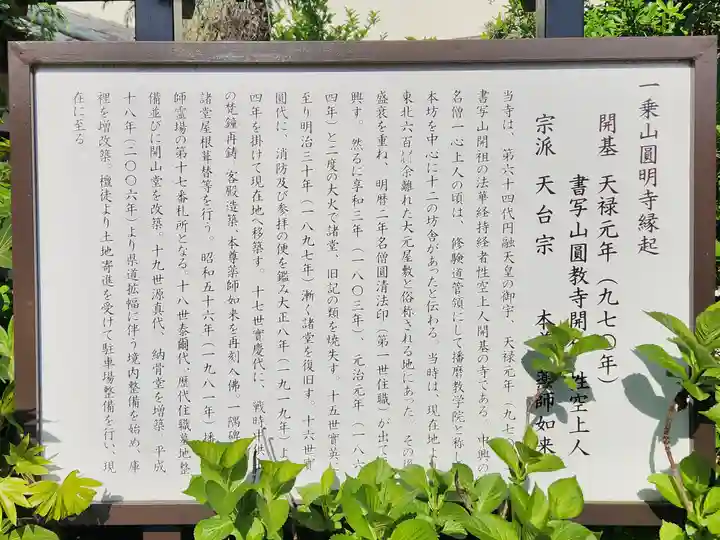 一乗山圓明寺縁起
開基 天禄元年(九七〇年)
書写山圓教寺開 性空上人
宗派 天台宗 本 薬師如来
当寺は、第六十四代円融天皇の御宇、天禄元年(九七
書写山開祖の法華経持経者性空上人開基の寺である 中興の
名僧一心上人の頃は、修験道管領にして播磨教学院と称し
本坊を中心に十二の坊舎があったと伝わる。当時は、現在地よ
東北六百 余離れた大元屋敷と俗称される地にあった その
盛衰を重ね、明暦二年名僧圓清法印(第一世住職)が出て
興す。然るに享和三年(一八〇三年)、元治元年(一八六
四年)と二度の大火で諸堂、旧記の類を焼失す。十五世實英
至り明治三十年(一八九七年)漸く諸堂を復旧す。十六世實
圓代に、消防及び参拝の便を鑑み大正八年(一九一九年)よ
四年を掛けて現在地へ移築す。十七世實慶代に、戦時 供
の梵鐘再鋳 客殿造築、本尊薬師如来を再刻入佛。一隅
諸堂屋根葺替等を行う。昭和五十六年(一九八一年)播
師霊場の第十七番札所となる。十八世泰爾代、歴代住職墓地整
備並びに開山堂を改築。十九世源真代、納骨堂を増築 平成
十八年(二〇〇六年)より県道拡幅に伴う境内整備を始め、庫
裡を増改築、檀徒より土地寄進を受けて駐車場整備を行い、現
在に至る